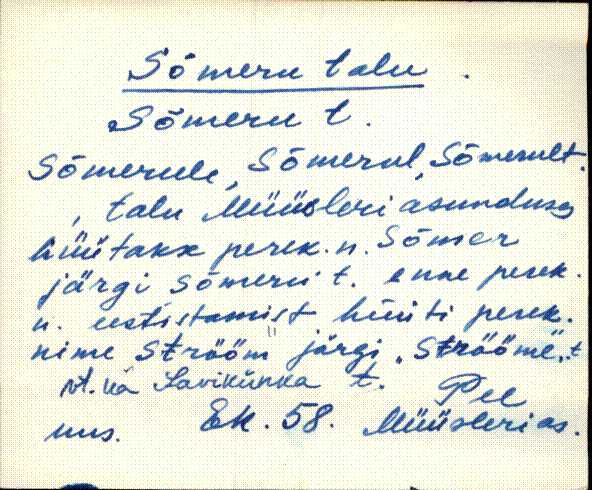 Sõmeru talu.
Sõmeru t.
Sõmerule, Sõmerul, Sõmerult.
, talu Müüsleri asunduses
hüütakse perek. n. Sõmer
järgi Sõmeru t. enne perek.
n. eestistamist hüüti perek.
nime Strööm" järgi „Strööme„ t
vt. ka Savikünka t.
Pee
mus. Ek. 58. Müüsleri as.